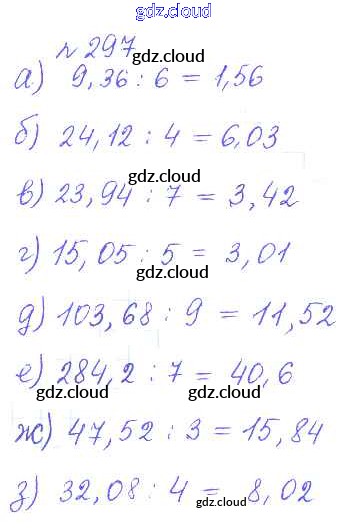 gdz.cloud
№ 297
gdz.cloud
а) 9,36 : 6 = 1,56
gdz.cloud
б) 24,12 : 4 = 6,03
gdz.cloud
в) 23,94 : 7 = 3,42
г) 15,05 : 5 = 3,01
gdz.cloud
д) 103,68 : 9 = 11,52
gdz.cloud
е) 284,2 : 7 = 40,6
gdz.cloud
ж) 47,52 : 3 = 15,84
gdz.cloud
з) 32,08 : 4 = 8,02
gdz.cloud